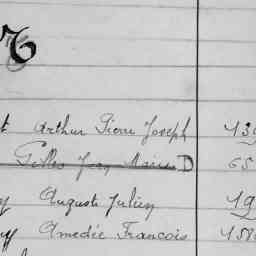 t Arthur Pierre Joseph 139
Gilles Jean Marie D 65
y Auguste Julien 19
y Amedée Francois 150